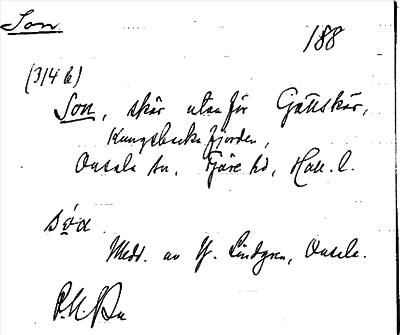 Son
188
(314 b)
Son, skär utanför Gåttskär,
Kungsbackafjorden,
Onsala sn, Fjäre hd, Hall. l.
Medd. av Lindgren, Onsala.